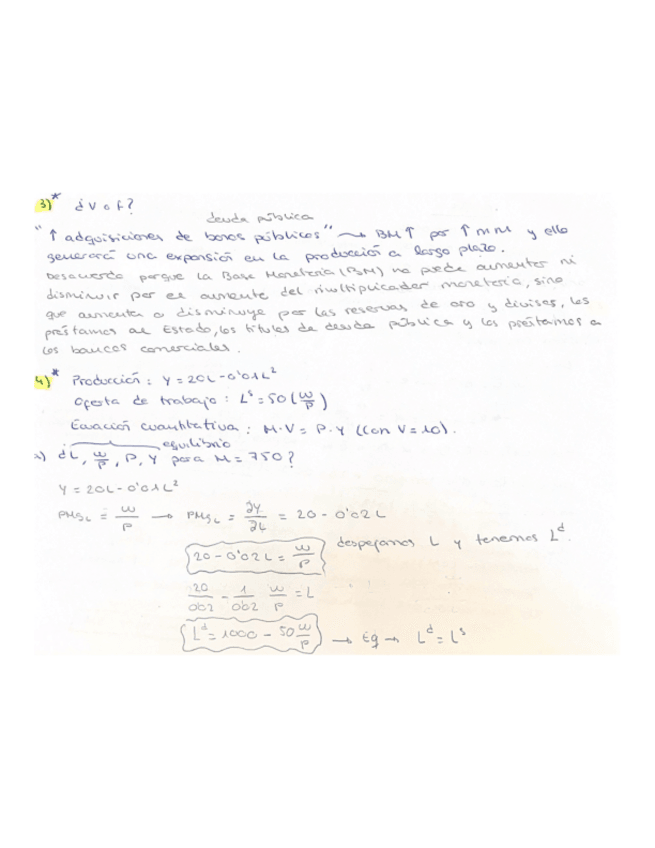 3)* ¿V o F?
deuda pública
"↑ adquisiciones de bonos públicos" → BM↑ por ↑mm y ello
generará una expansión en la producción a largo plazo.
Desacuerdo porque la Base Monetaria (BM) no puede aumentar ni
disminuir por el aumento del multiplicador monetario, sino
que aumenta o disminuye por las reservas de oro y divisas, los
préstamos al Estado, los títulos de deuda pública y los préstamos a
los bancos comerciales.
4)* Producción: Y = 20L - 0'01L²
Oferta de trabajo: Lˢ = 50(w/P)
Ecuación cuantitativa: M·V = P·Y (con V = 10).
equilibrio
a) ¿L, w/P, P, Y para M = 750?
Y = 20L - 0'01L²
PMgL = w/P → PMgL = ∂Y/∂L = 20 - 0'02L
20 - 0'02L = w/P despejamos L y tenemos Lᵈ.
20/0'02 - 1/0'02 w/P = L
Lᵈ = 1000 - 50 w/P → Eq → Lᵈ = Lˢ